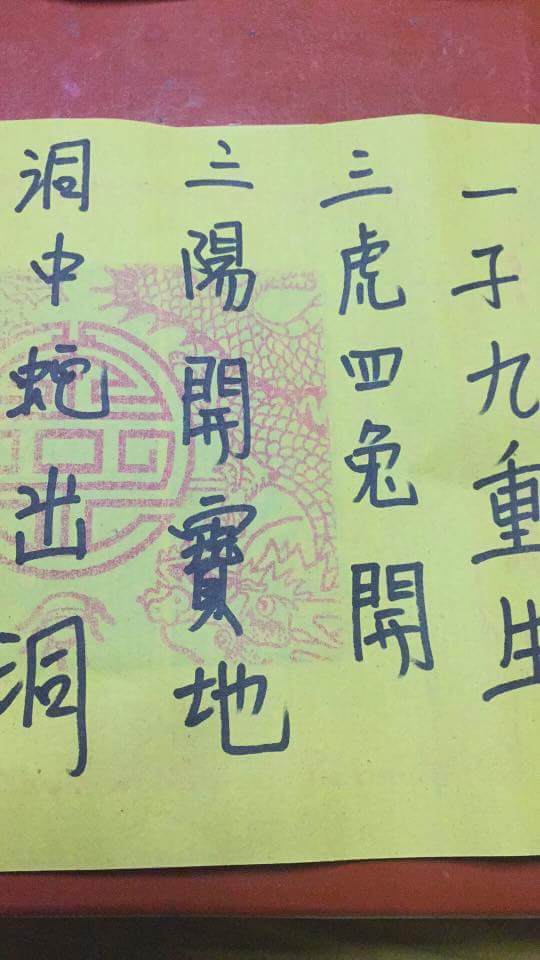 一子九重生
三虎四兔開
三陽開寶地
洞中蛇出洞